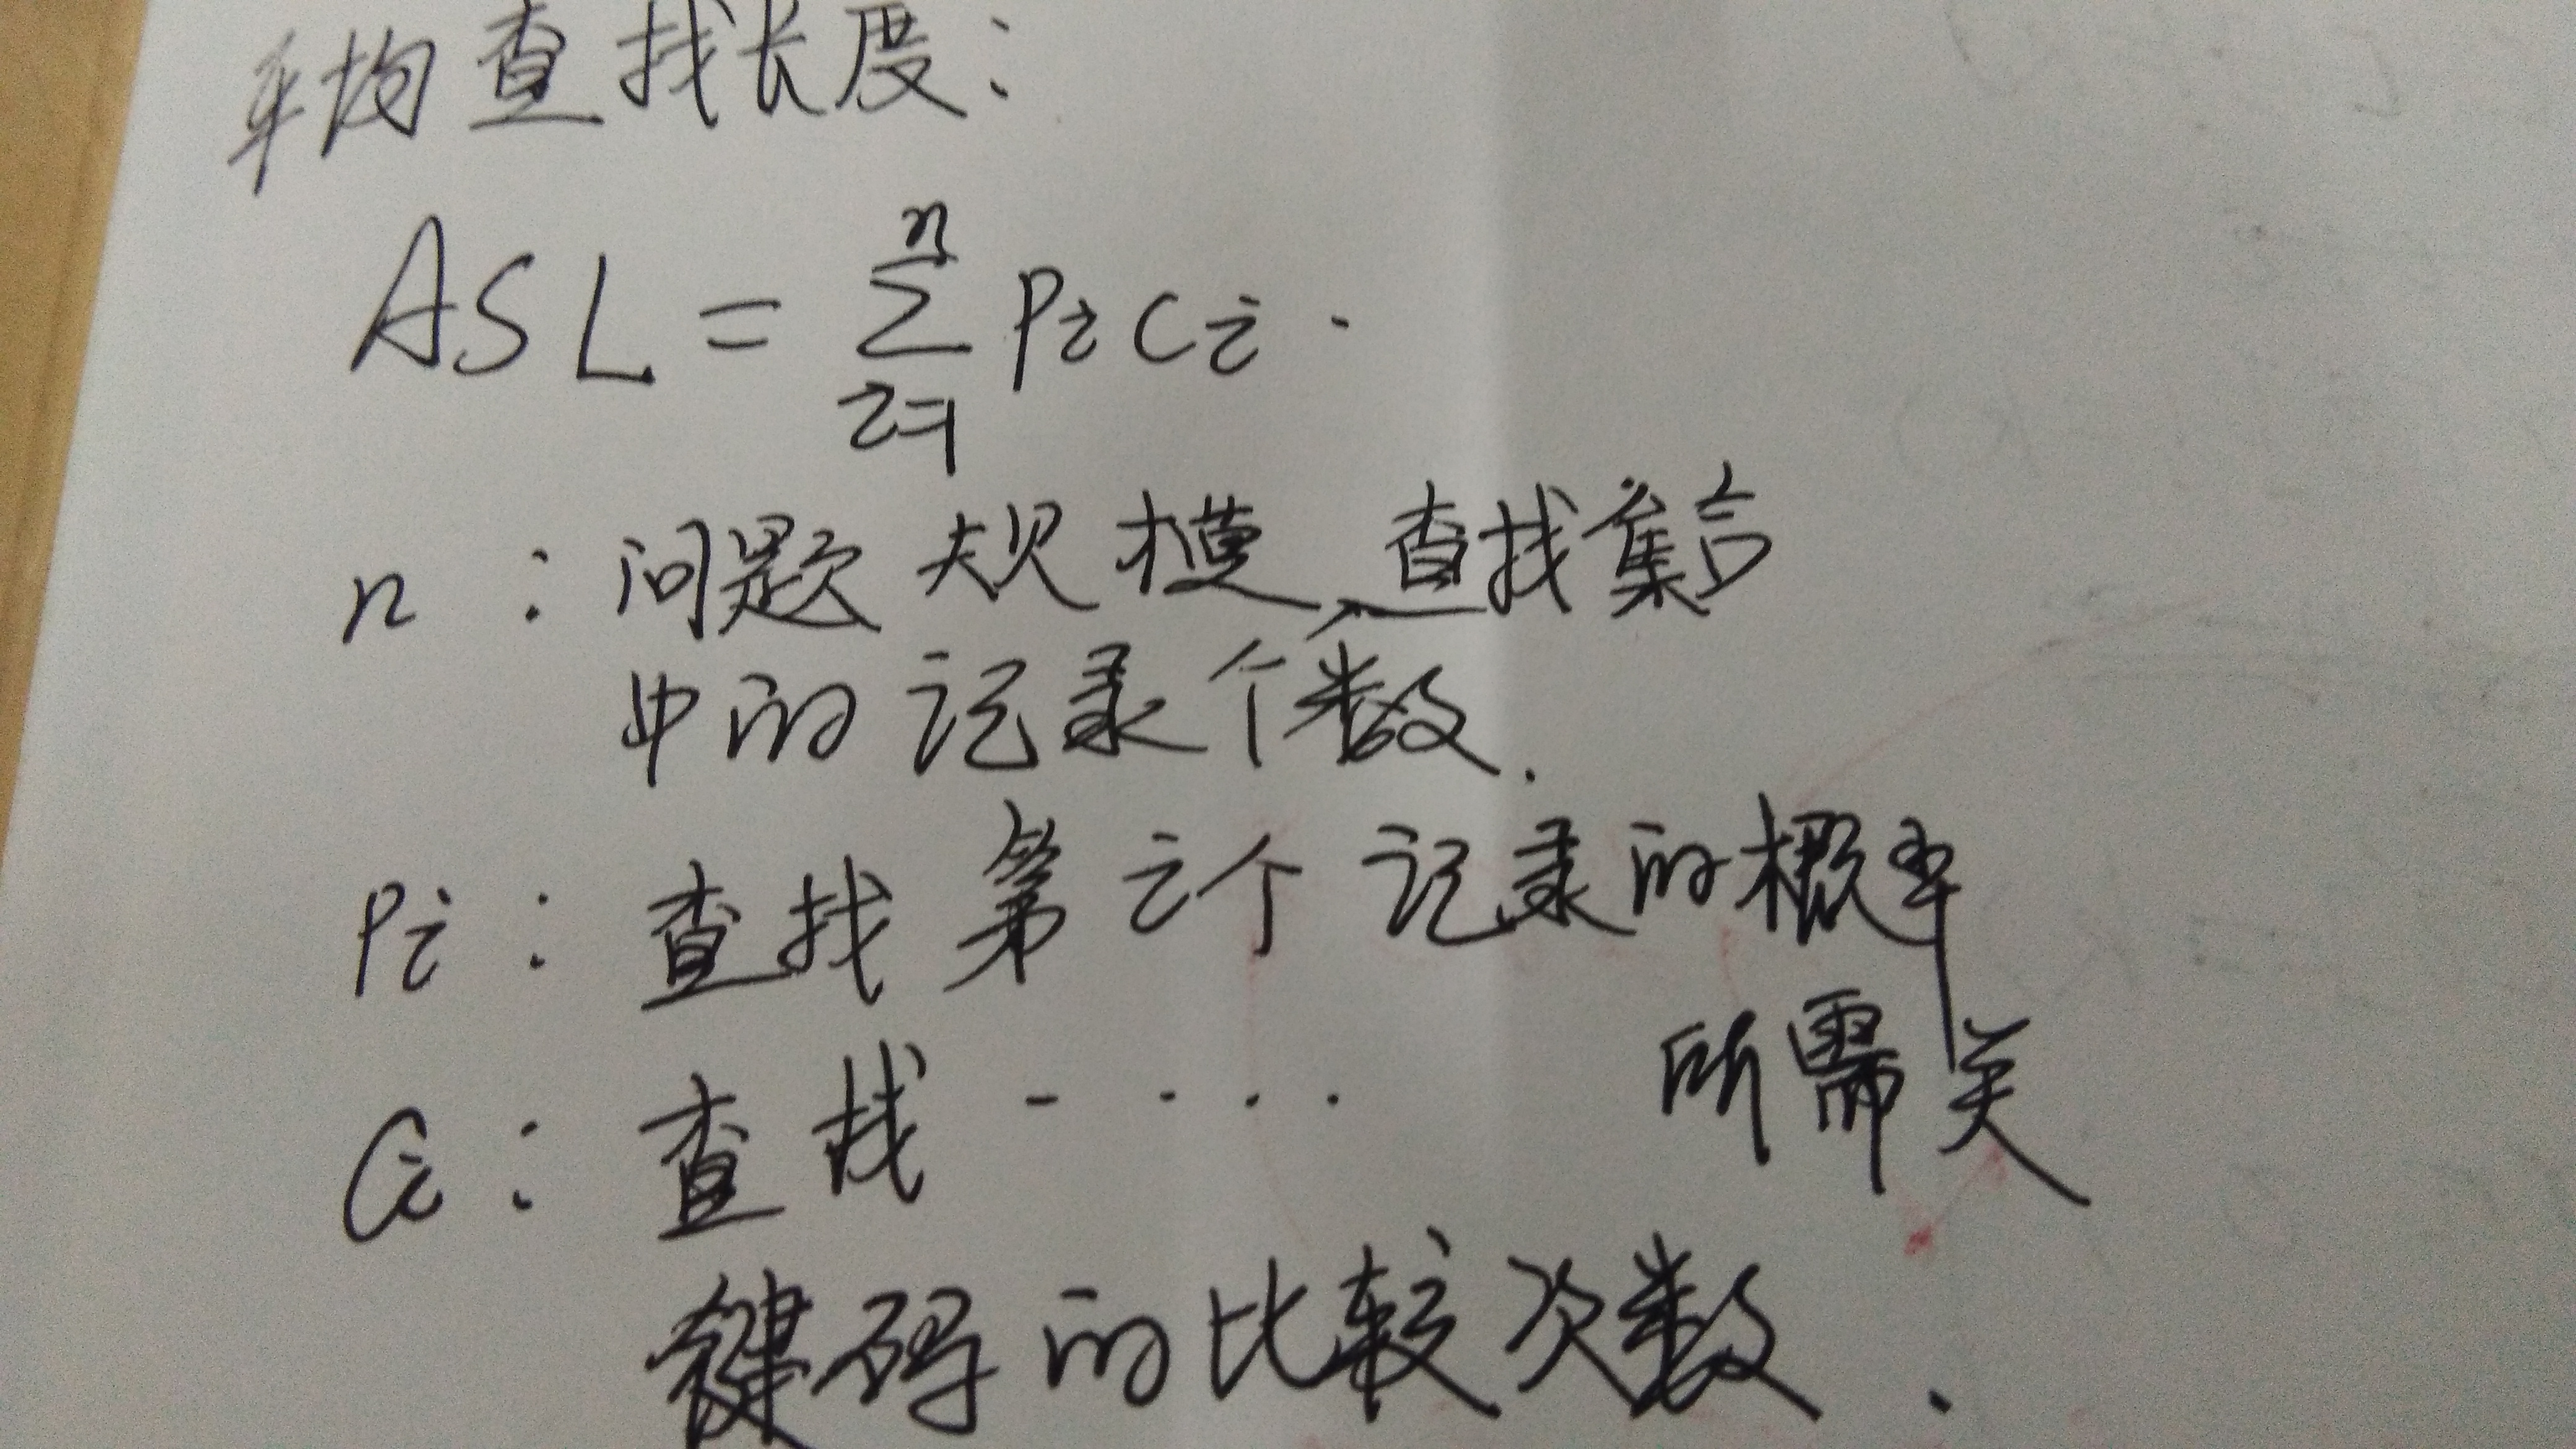 平均查找长度：
ASL = \sum_{i=1}^{n} Pi Ci .
n ：问题规模，查找集合
中的记录个数.
Pi ：查找第i个记录的概率
Ci ：查找 - . . . 所需关
键码的比较次数 .